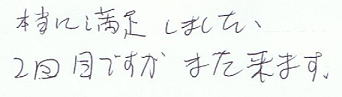 本当に満足しました、
2回目ですが また来ます。